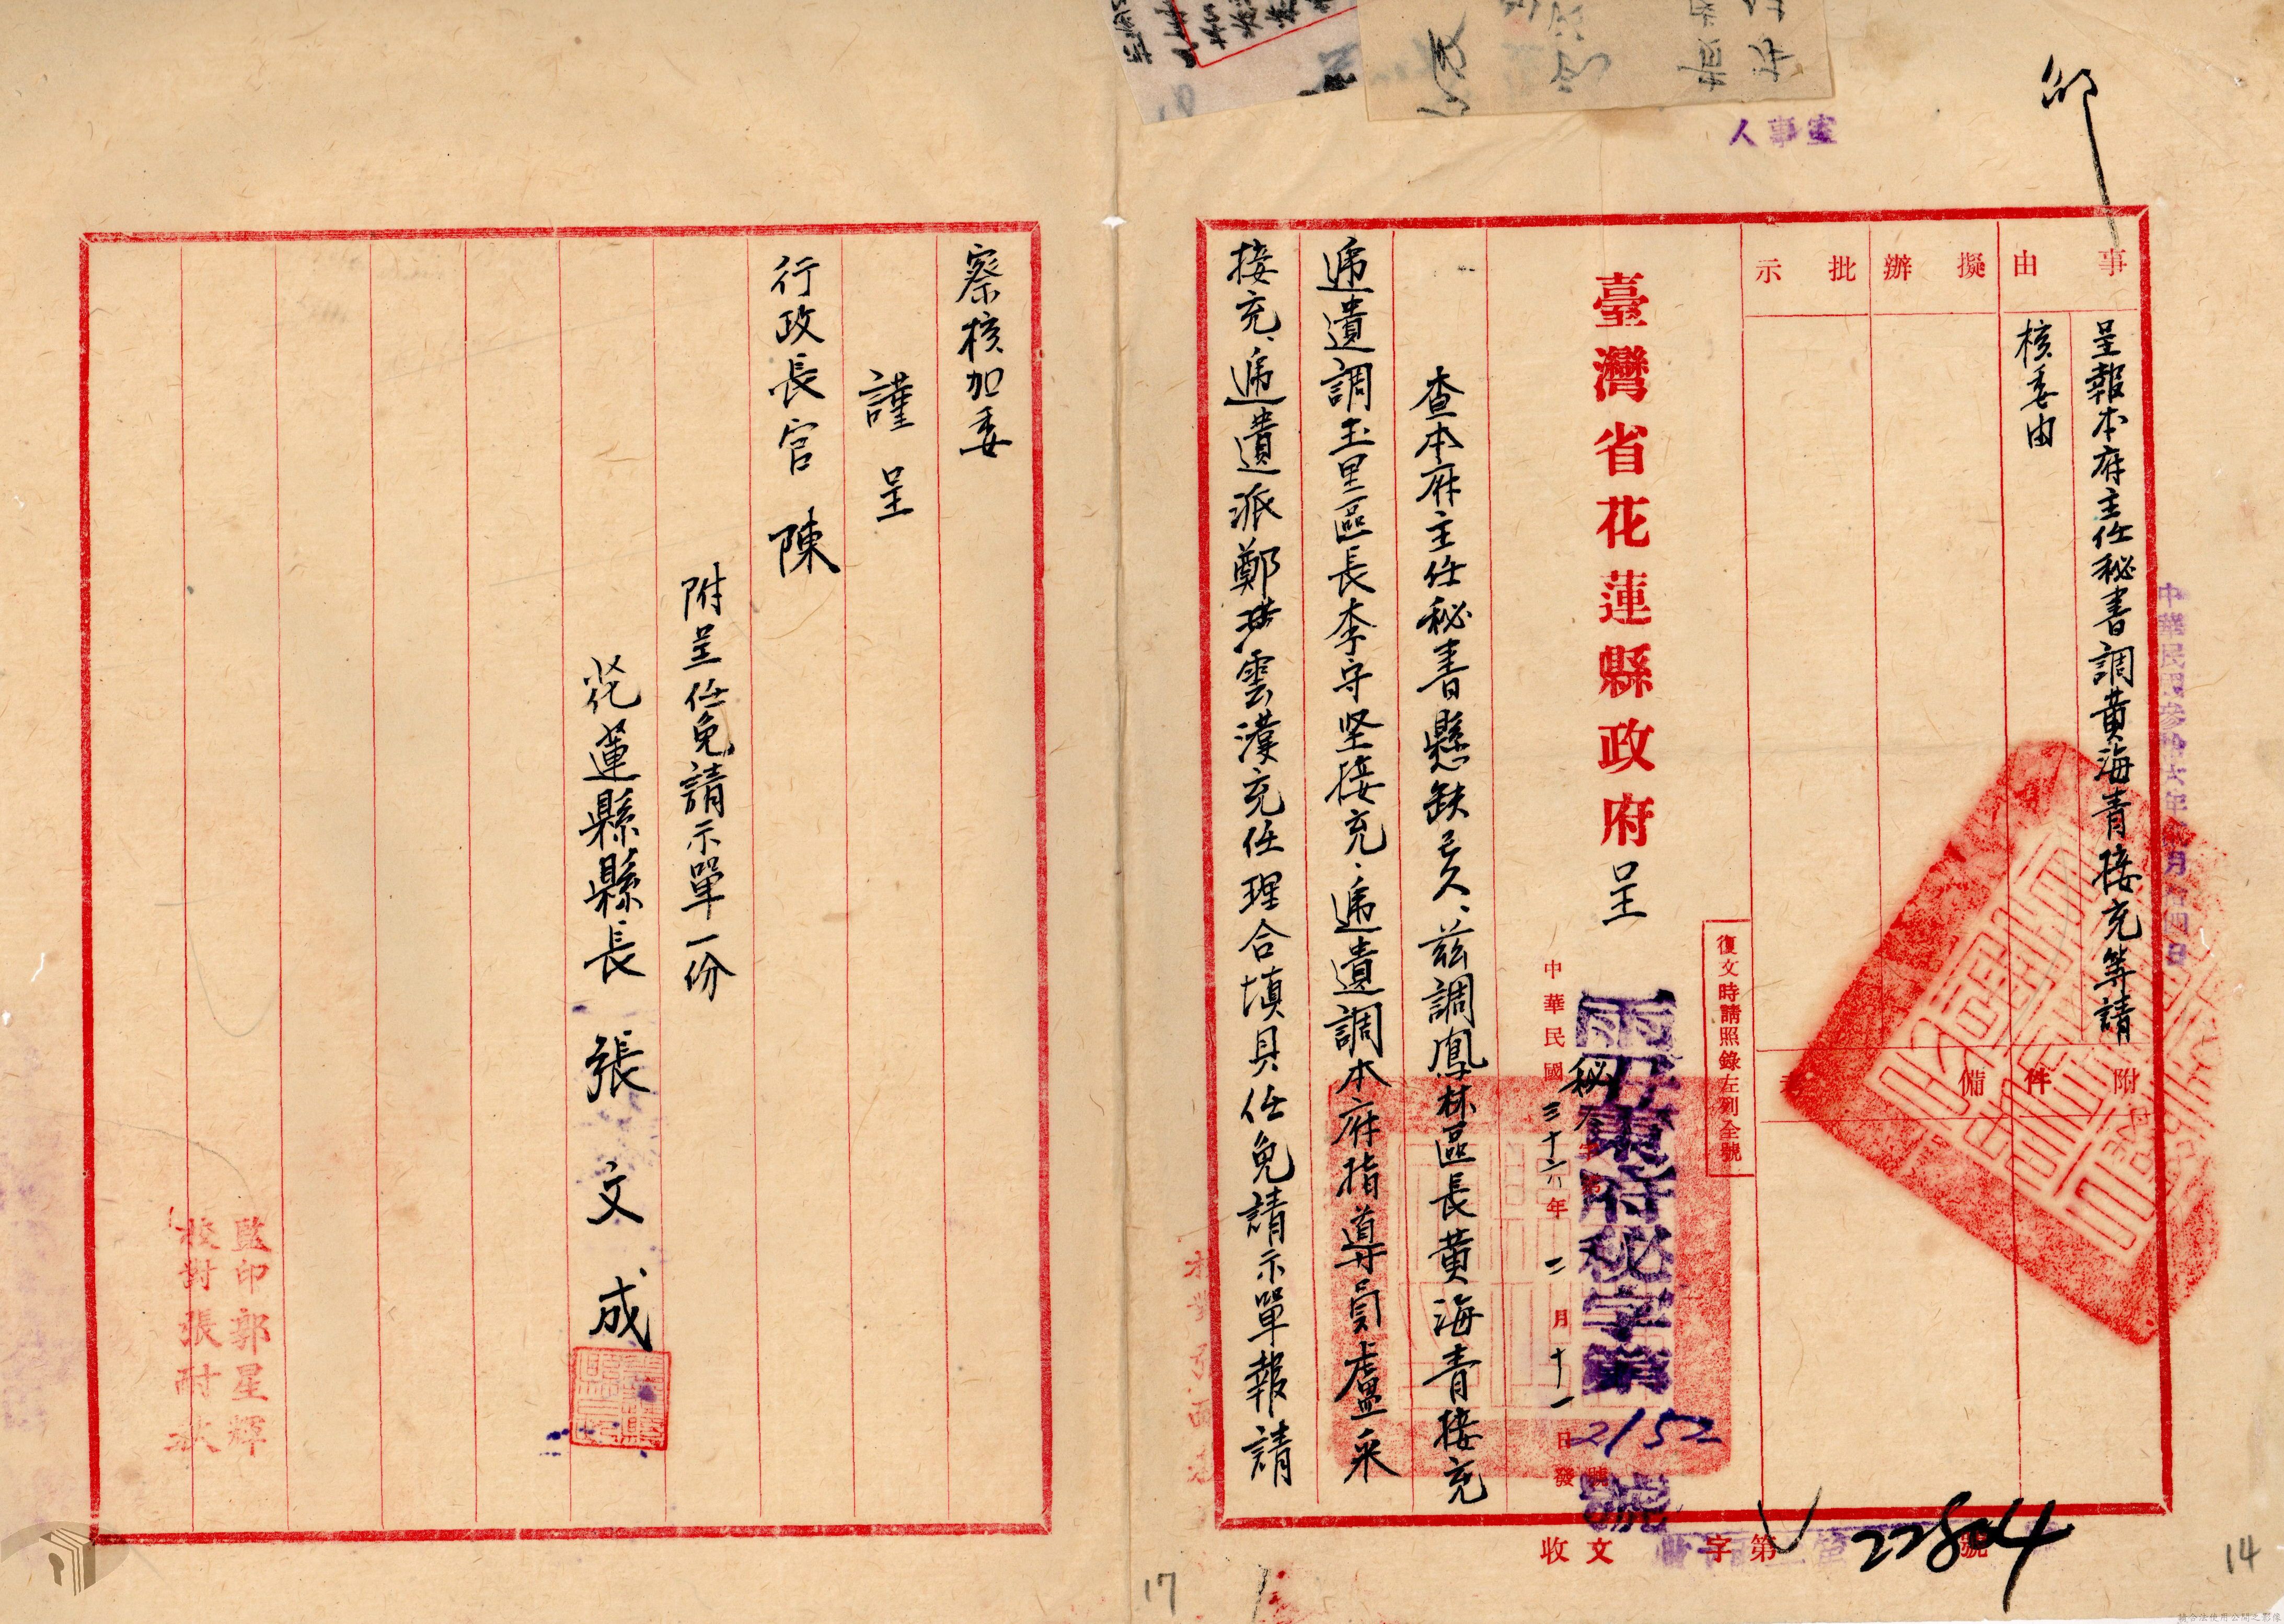 人事室
事由
呈報本府主任秘書調黃海青接充等請
核委由
擬辦
批示
附件
備考
復文時請照錄左列全號
臺灣省花蓮縣政府呈
丑東府秘字第2152號
中華民國三十六年二月十一日發
查本府主任秘書懸缺已久、茲調鳳林區長黃海青接充
遞遺調玉里區長李守堅接充、遞遺調本府指導員盧采
接充、遞遺遺派鄭雲漢充任理合填具任免請示單報請
察核加委
謹呈
行政長官 陳
附呈任免請示單一份
花蓮縣縣長 張文成
監印郭星輝
校對張耐秋
收文 字第22804號
14
17